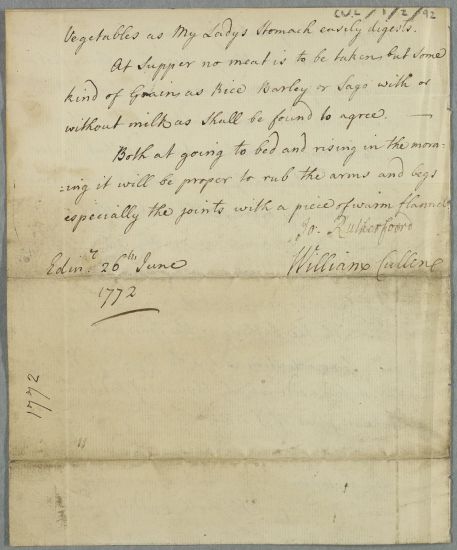 CUL/1/2/92
Vegetables as My Ladys Stomach easily digests.
At Supper no meat is to be taken but some
kind of Grain as Rice Barley or Sago with or
without milk as shall be found to agree. —
Both at going to bed and rising in the morn-
:ing it will be proper to rub the arms and legs
especially the joints with a piece of warm flannel
Jo: Rutherfoord
Edinr. 26th June
William Cullen
1772
1772